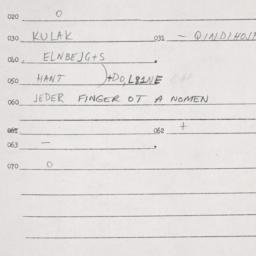 020 0
030 KULAK 031 - QINDIHOJI
040 ELNBEJGTS
050 HANT )+DO, L81NE
060 JEDER FINGER OT A NOMEN
062 +
063 -
070 0